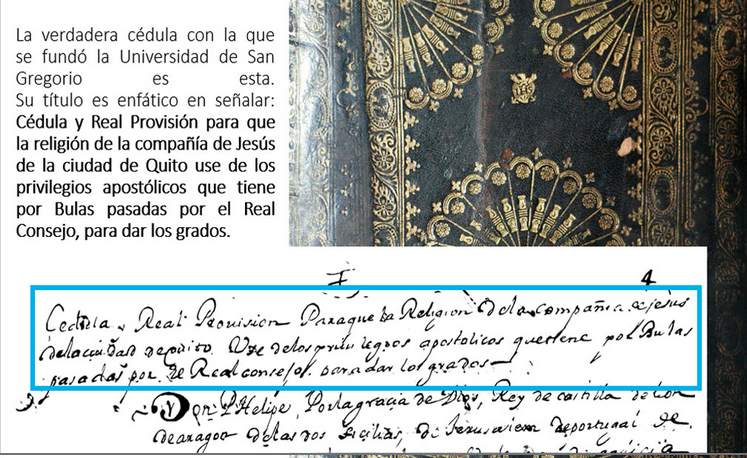 La verdadera cédula con la que
se fundó la Universidad de San
Gregorio es esta.
Su título es enfático en señalar:
Cédula y Real Provisión para que
la religión de la compañía de Jesús
de la ciudad de Quito use de los
privilegios apostólicos que tiene
por Bulas pasadas por el Real
Consejo, para dar los grados.
4
Cedula y Real Prouision Paraque la Religion de la compañia de jesus
delaciudad dequito. Vse delos priuilegios apostolicos quetiene por Bulas
pasadas por el Real consejo para dar los grados
Don Phelipe, Porlagracia de Dios, Rey de castilla deleon
dearagon delas dos sicilias, de Jerusalem deportugal de